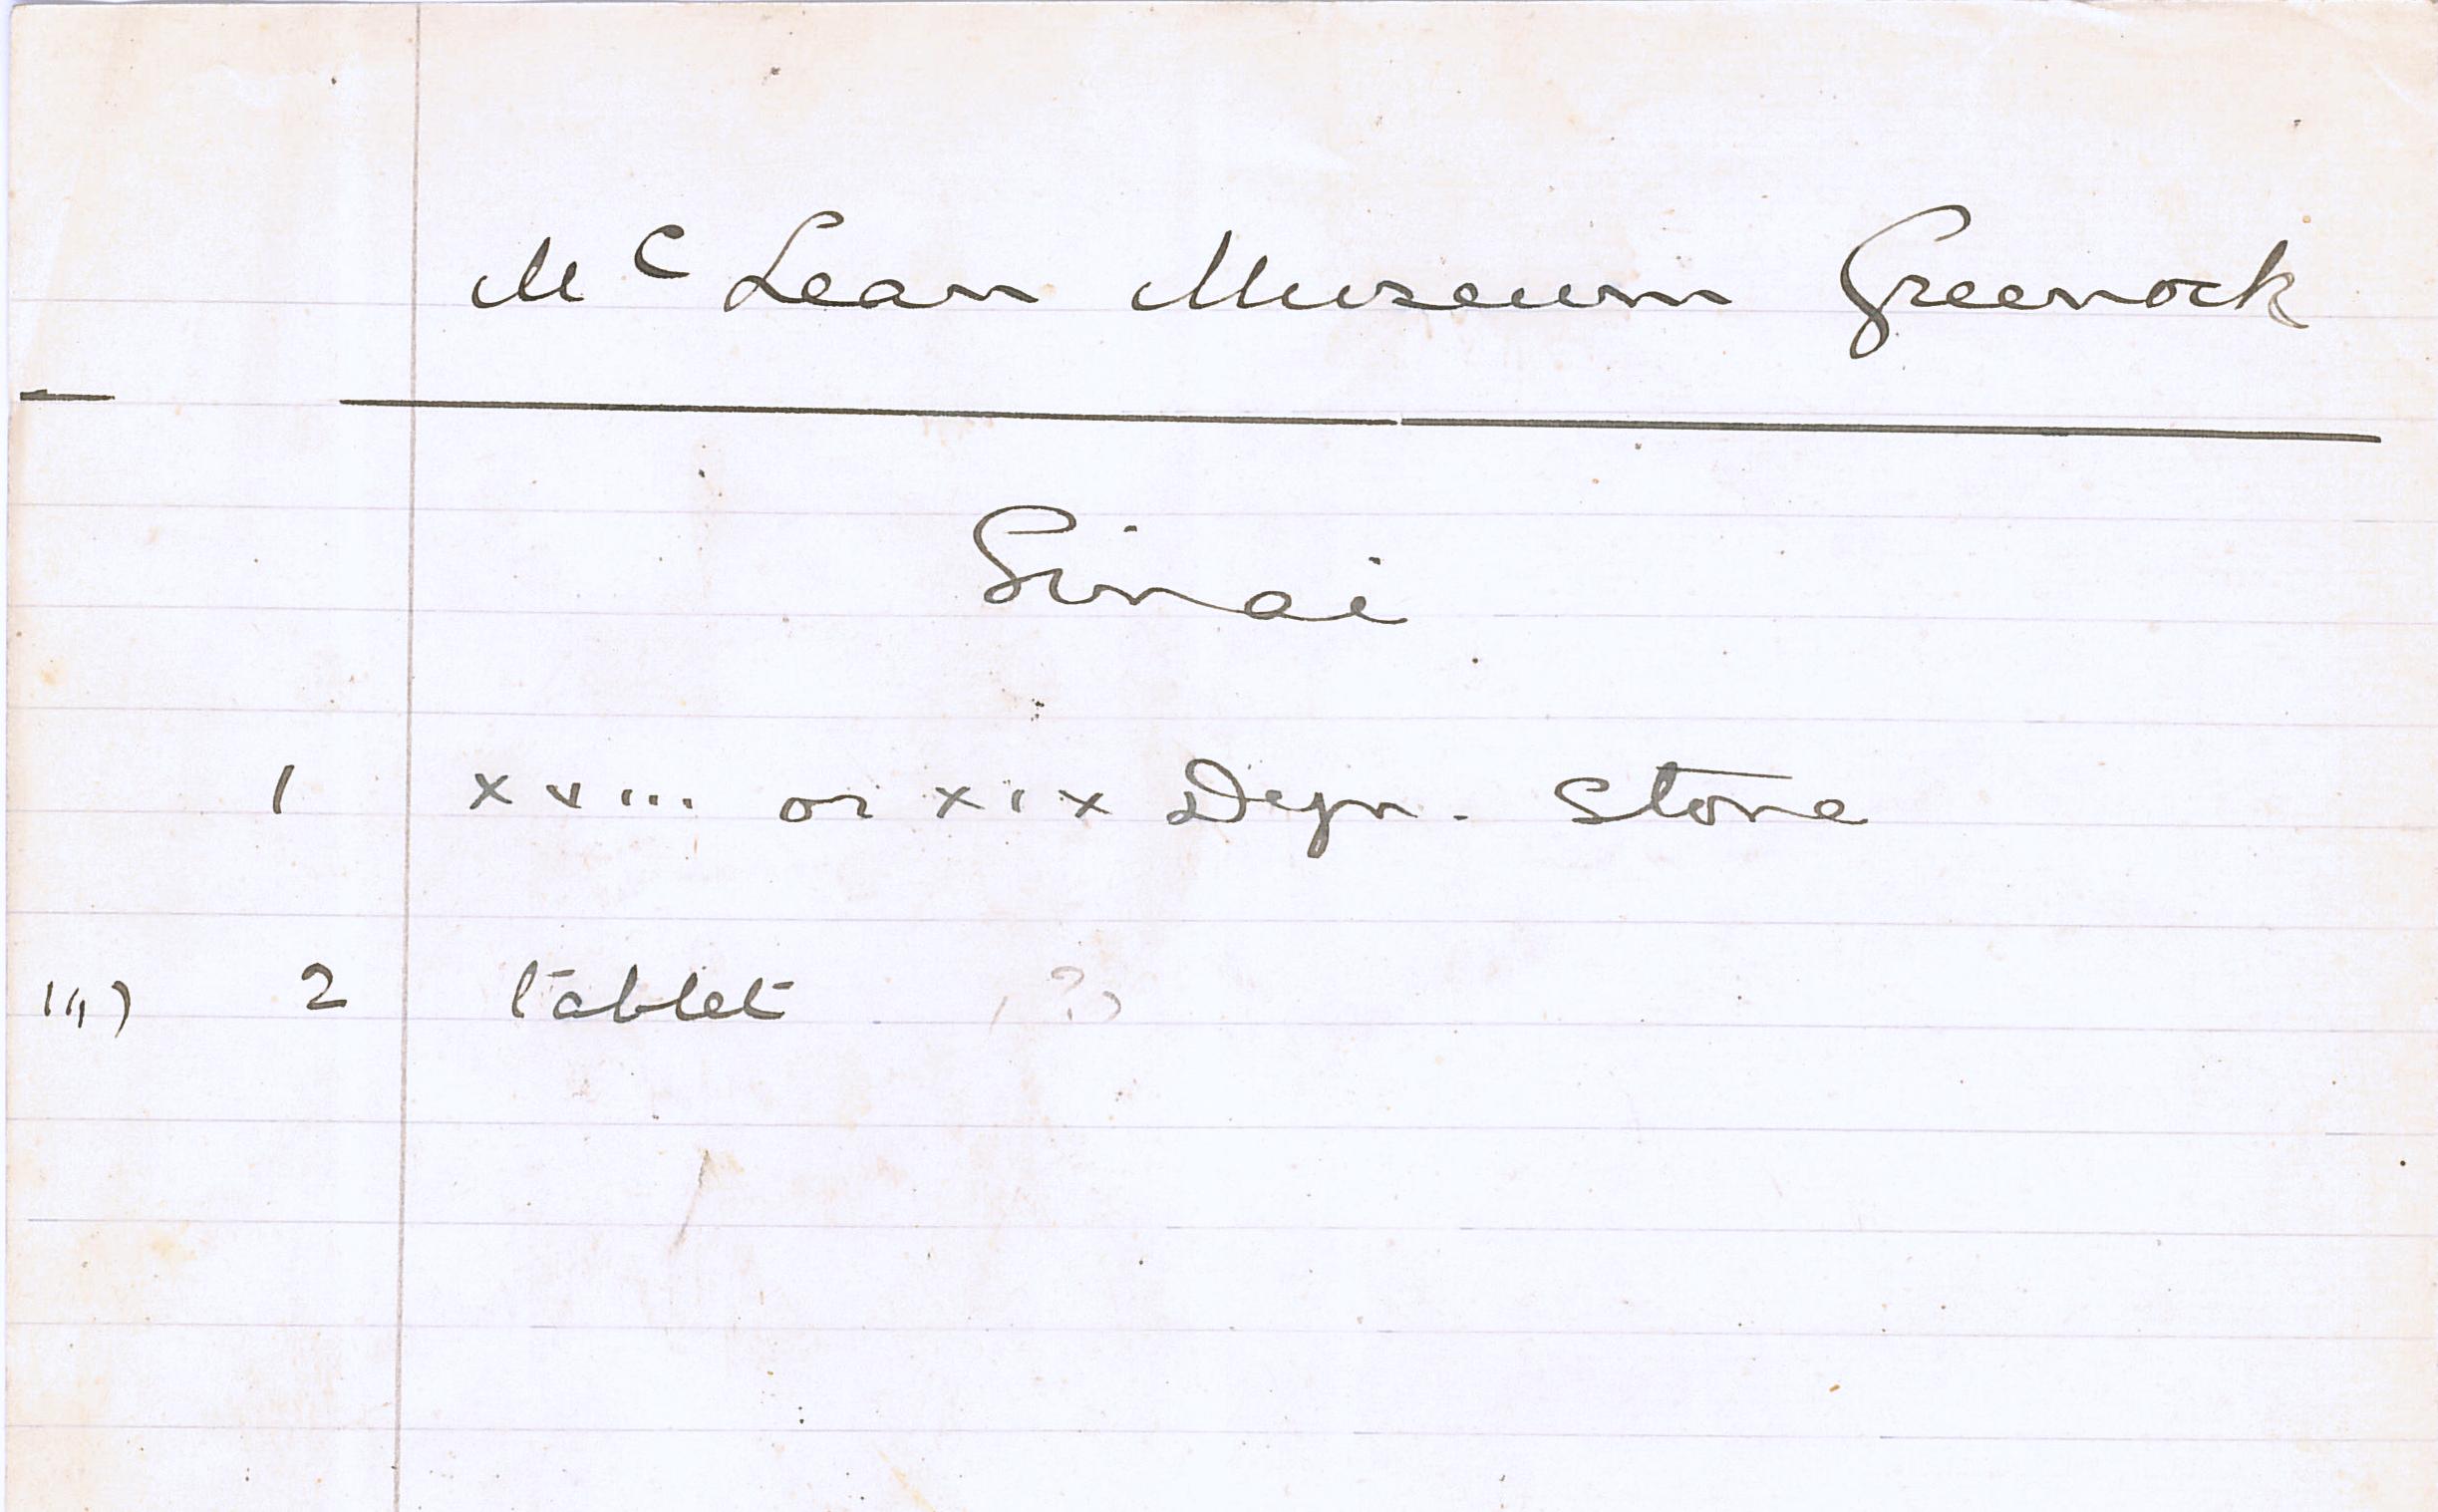 Mc Lean Museum Greenock
Sinai
1 xviii or xix Dyn. Stone
iii) 2 tablet (?)